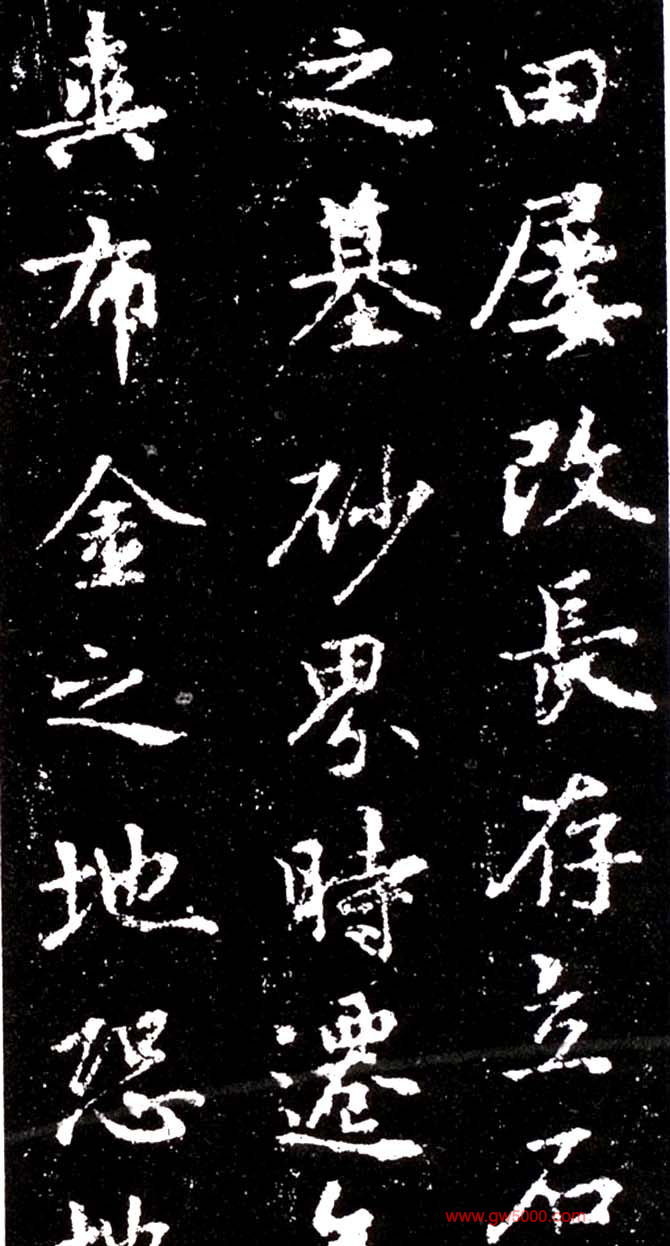 田屢改長存立石
之基砂界時遷
真布金之地恐地